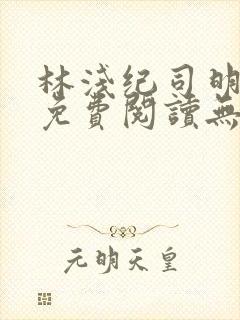 林淺纪司明
免費閱讀無
元明天皇